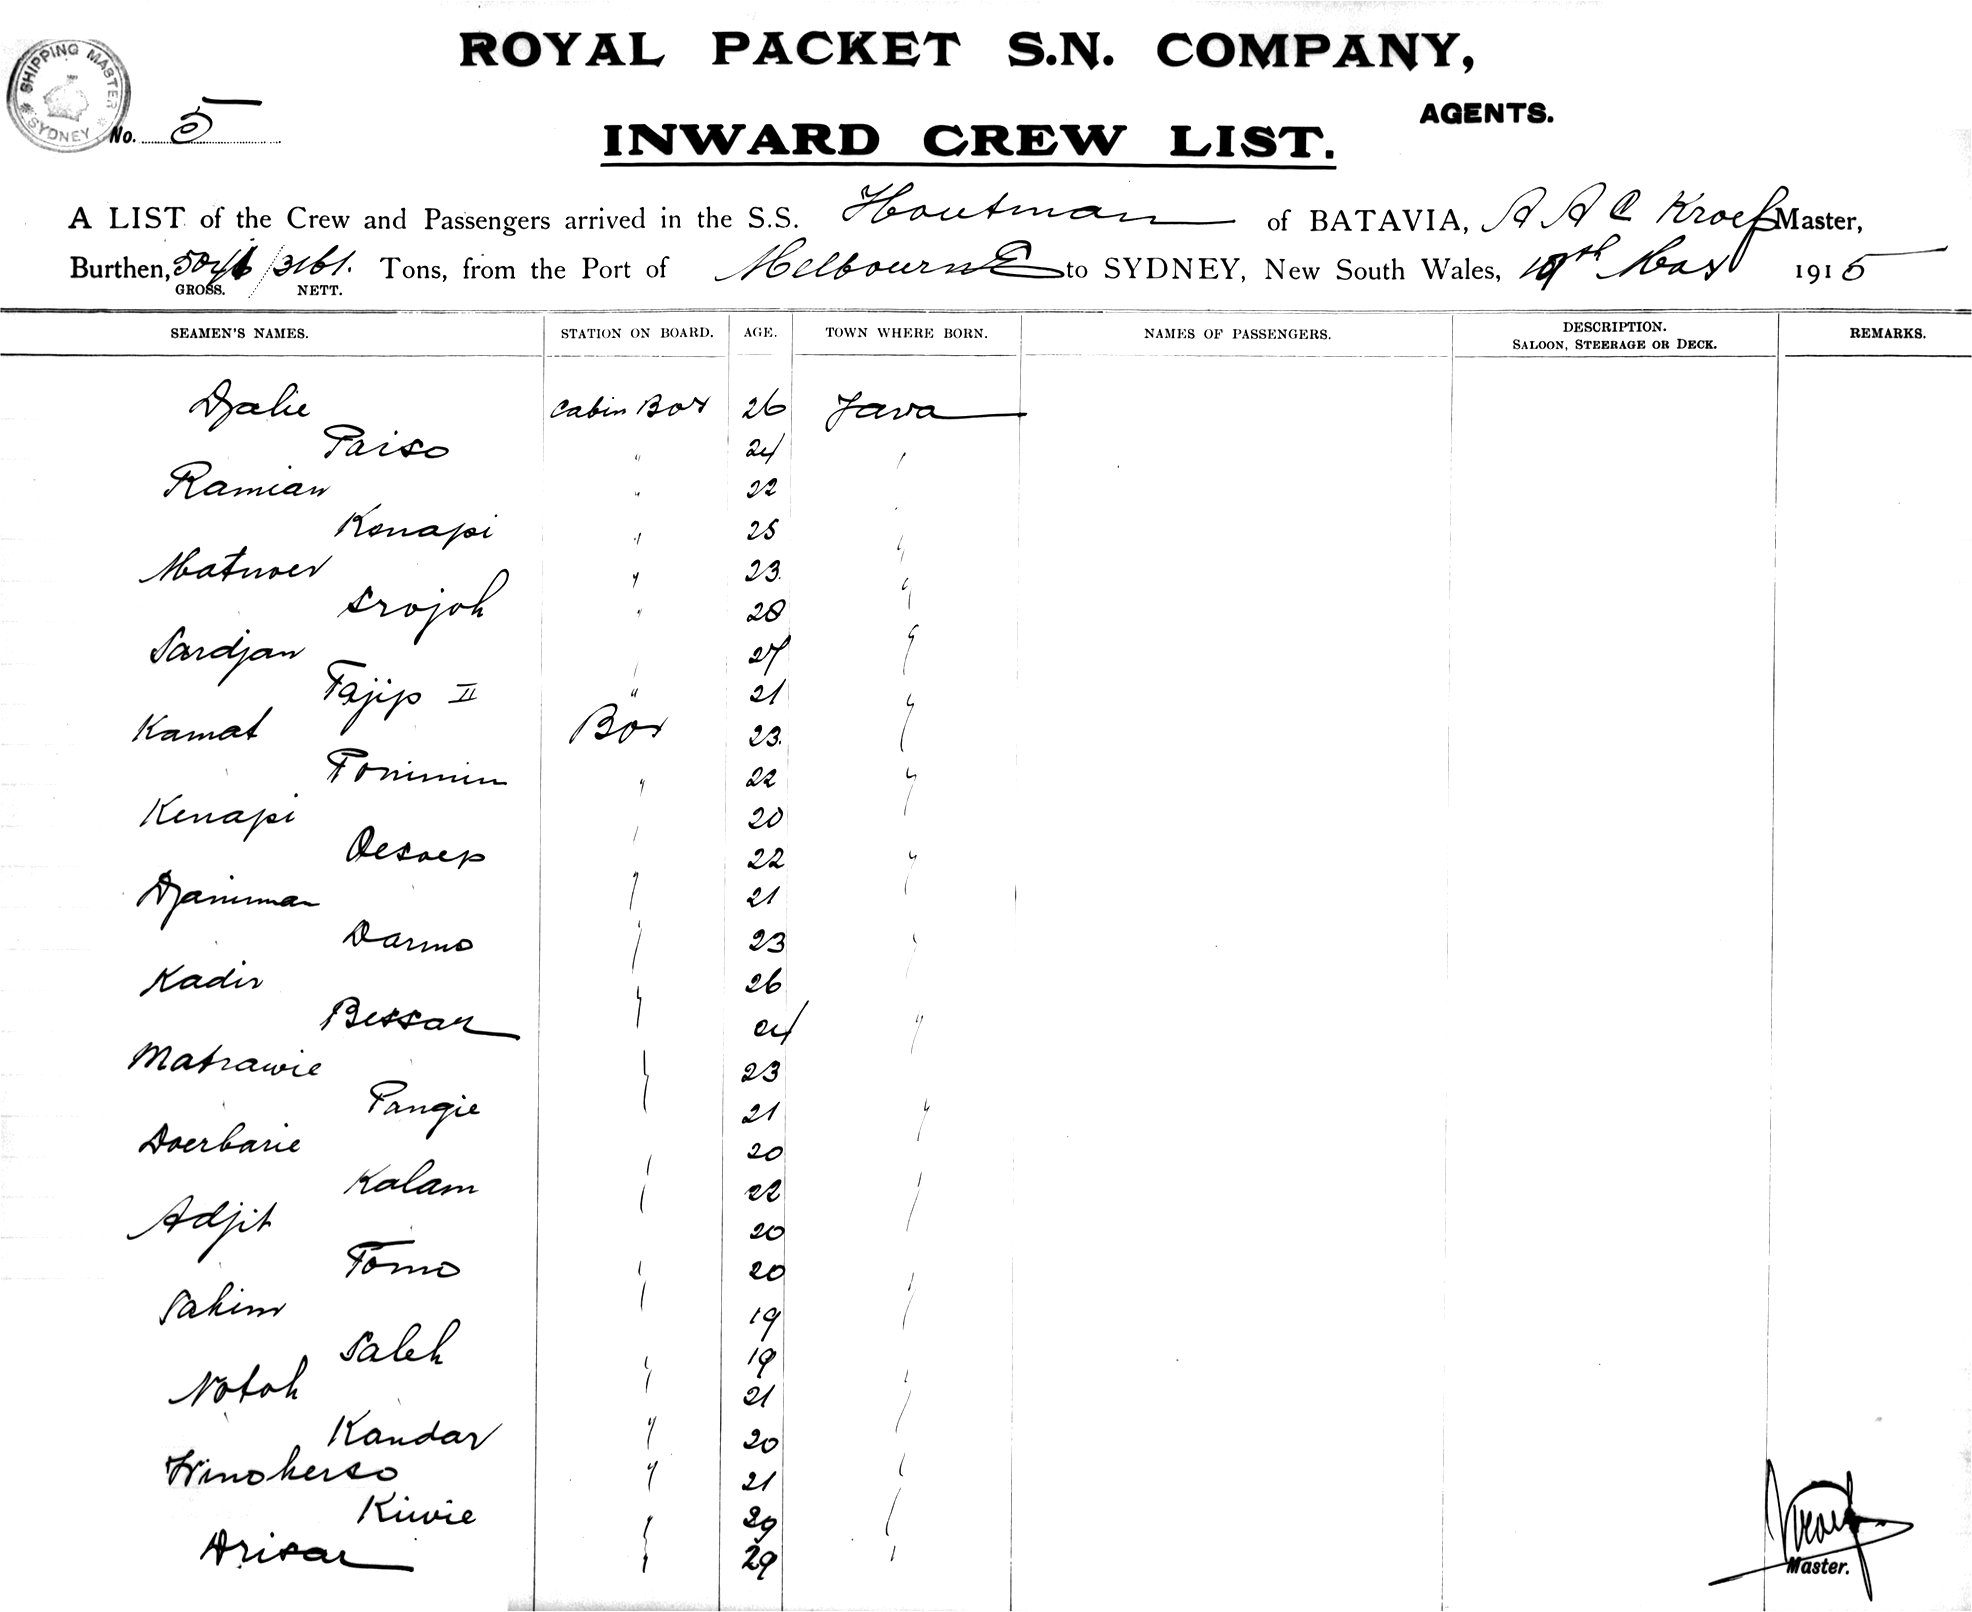 SHIPPING MASTER SYDNEY
ROYAL PACKET S.N. COMPANY,
AGENTS.
No. 5
INWARD CREW LIST.
A LIST of the Crew and Passengers arrived in the S.S. Houtman of BATAVIA, A A C Kroef Master,
Burthen, / 3161. Tons, from the Port of Melbourne to SYDNEY, New South Wales, 1915
GROSS. NETT.
SEAMEN'S NAMES. STATION ON BOARD. AGE. TOWN WHERE BORN. NAMES OF PASSENGERS. DESCRIPTION. SALOON, STEERAGE OR DECK. REMARKS.
Djalie Cabin Boy 26 Java
Paiso " 24 "
Ramian " 22
Konapi " 25 "
Matnoer " 23. "
Srojoh " 28 "
Sardjan " 27 "
Tajip II " 21 "
Kamat Boy 23.
Ponimin " 22 "
Kenapi " 20
Oesoep 22 "
Djaniman " 21
Darmo " 23 "
Kadir 26
Bessar " 24 "
Matrawie " 23
Pangie 21 "
Doerbarie 20
Kalam " 22 "
Adjit 20
Tomo " 20 "
Sakim 19
Saleh " 19
Notoh 21 "
Kandar " 20
Winokerso " 21 "
Kiwie " 29 "
Arisar " 29 "
Master.